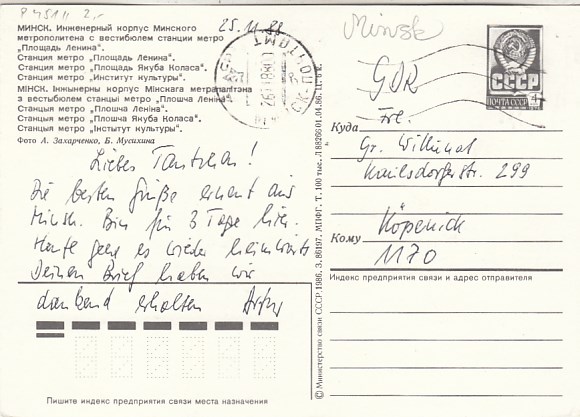 P 4511 2,-
25.11.88
Minsk
МИНСК. Инженерный корпус Минского
метрополитена с вестибюлем станции метро
„Площадь Ленина“.
Станция метро „Площадь Ленина“.
Станция метро „Площадь Якуба Коласа“.
Станция метро „Институт культуры“.
МІНСК. Інжынерны корпус Мінскага метрапалітэна
з вестыбюлем станцыі метро „Плошча Леніна“.
Станцыя метро „Плошча Леніна“.
Станцыя метро „Плошча Якуба Коласа“.
Станцыя метро „Інстытут культуры“.
Фото А. Захарченко, Б. Мусихина
Liebes Tantchen!
Die besten Grüße erhaltet aus
Minsk. Bin für 3 Tage hier.
Heute geht es wieder heimwärts
Deinen Brief haben wir
dankend erhalten
Пишите индекс предприятия связи места назначения
© Министерство связи СССР 1986. З. 86197. МПФГ. Т. 100 тыс. Л 88266 01.04.86. Ц. 4 к.
СССР
ПОЧТА СССР
4
ПОЧТАМТ
GDR
Куда
Fr.
Gr. Willinal
299
Кому
Köpenick
1170
Индекс предприятия связи и адрес отправителя